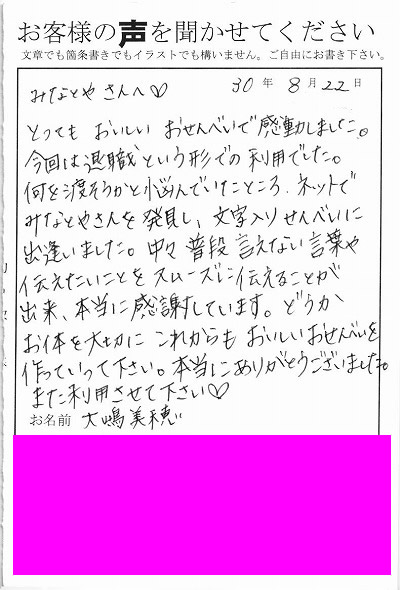 お客様の声を聞かせてください
文章でも箇条書きでもイラストでも構いません。ご自由にお書き下さい。
30年 8月 22日
みなとやさんへ♡
とっても おいしい おせんべいで感動しました。
今回は退職という形での利用でした。
何を渡そうかと小悩んでいたところ、ネットで
みなとやさんを発見し、文字入りせんべいに
出逢いました。中々 普段 言えない言葉や
伝えたいことをスムーズに伝えることが
出来、本当に感謝しています。どうか
お体を大切に これからも おいしいおせんべいを
作っていって下さい。本当にありがとうございました。
また利用させて下さい♡
お名前 大嶋美穂